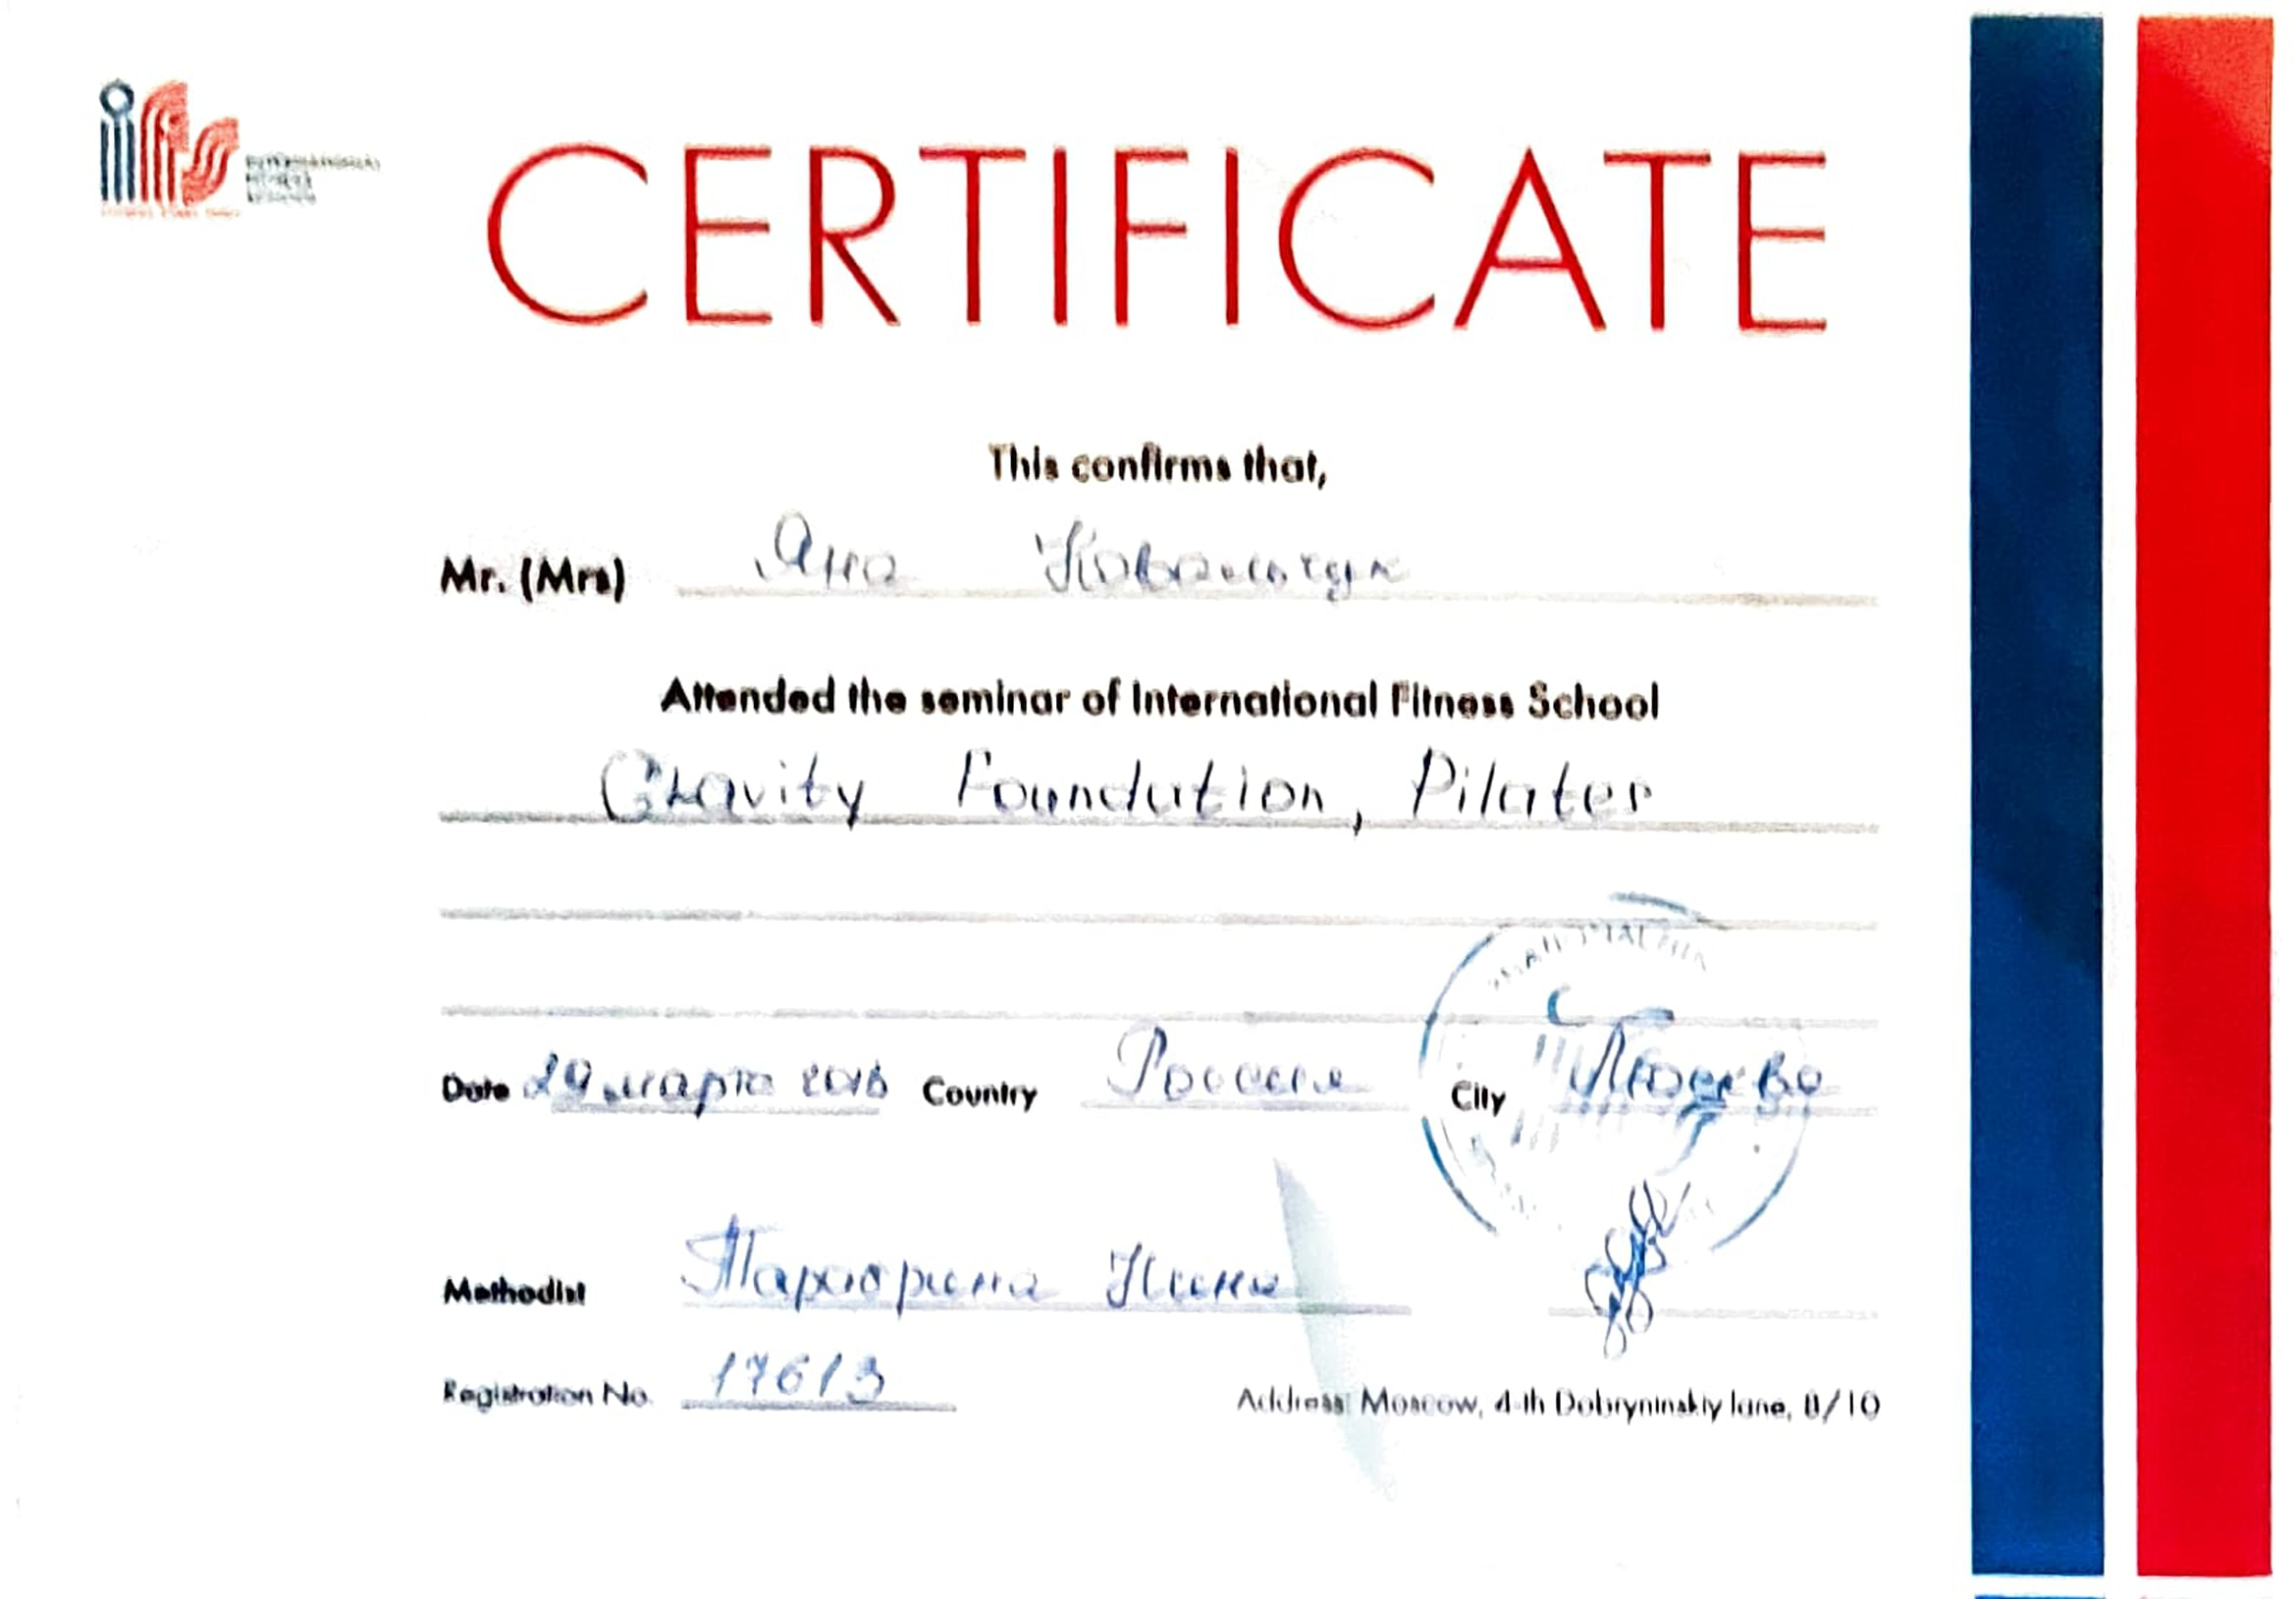 ifs INTERNATIONAL FITNESS SCHOOL
CERTIFICATE
This confirms that,
Mr. (Mrs) Яна Ковальчук
Attended the seminar of International Fitness School
Gravity Foundation, Pilates
Date 29 марта 2016 Country Россия City Москва
Methodist Нина
Registration No. 17613 Address: Moscow, 4-th Dobryninskiy lane, 8/10